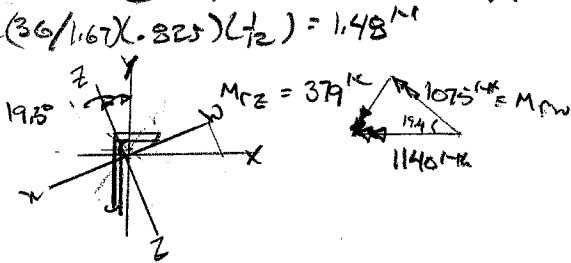 (36/1.67)(.825)(1/12) = 1.48 'K
Z Y
19.5° W Mrz = 379 'K 1075 'K = Mrw
19.4°
X
1140 'K
W
Z